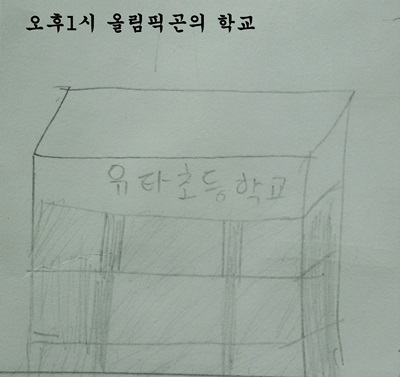 오후1시 올림픽곤의 학교
유타초등학교